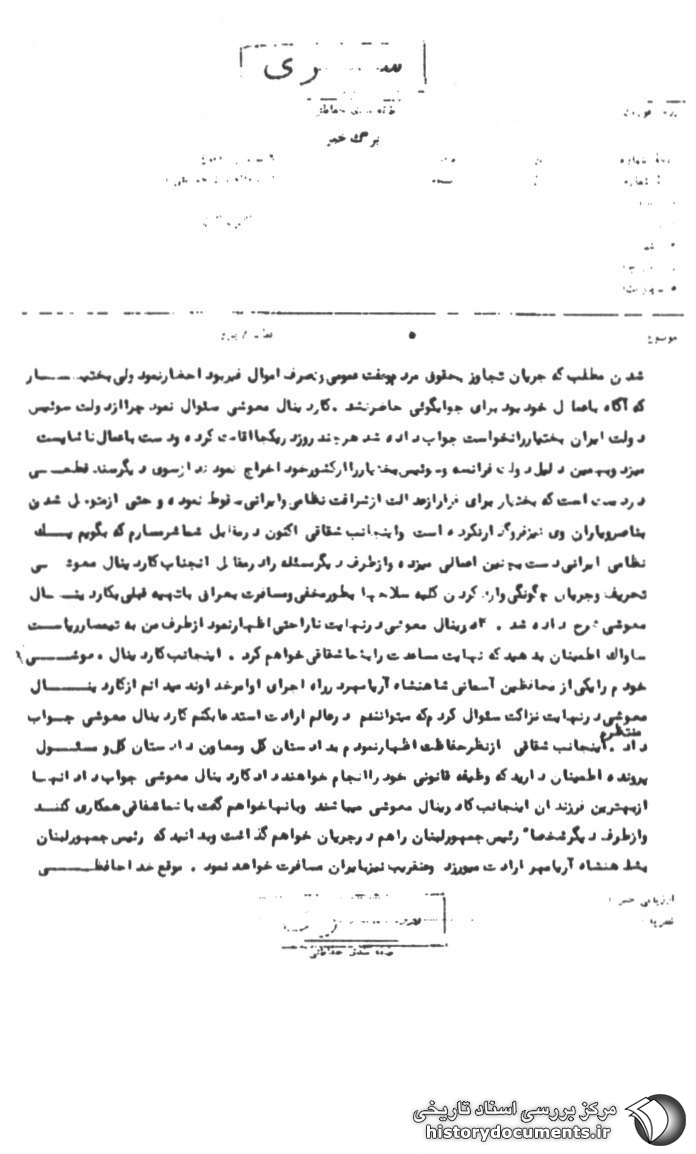 سری
طبقه بندی حفاظتی
برگ خبر
موضوع
شدن مطلب که جریان تجاوز بحقوق مردم وبعث عمومی وتصرف اموال غیربود احضارنمود ولی بختیـــــار
که آگاه باعمال خود بود برای جوابگوئی حاضرنشد . کاردینال معوشی سئوال نمود چرا ازدولت سوئیس
دولت ایران بختیاررانخواست جواب داده شد هرچند روزدریکجا اقامت کرده ودست باعمال ناشایست
میزد وبهمین دلیل دولت فرانسه وسوئیس بختیاررا ازکشورخود اخراج نمودند ازسوی دیگرسند قطعـــی
دردست است که بختیار برای فرارازعدالت ازشرافت نظامی وایرانی سقوط نموده و حتی ازمتوسل شدن
بناصرویاران وی نیزفروگذارنکرده است واینجانب شقاقی اکنون درمقابل شما شرمسارم که بگویم یـــک
نظامی ایرانی دست بچنین اعمالی میزده وازطرف دیگرمسئله رادرمقابل انجناب کاردینال معوشی
تحریف وجریان چگونگی وارد کردن کلیه سلاحها بطورمخفی ومسافرت بعراق باتهیه قبلی بکاردینـــال
معوشی شرح داده شد . کاردینال معوشی درنهایت ناراحتی اظهارنمود ازطرف من به تیمسارریاست
ساواک اطمینان بدهید که نهایت مساعدت رابشما شقاقی خواهم کرد . اینجانب کاردینال معوشـــی
خودم رایکی از محافظین آسمانی شاهنشاه آریامهردرراه اجرای اوامرخداوند میدانم ازکاردینـــال
معوشی درنهایت نزاکت سئوال کردم که میتوانند درعالم ارادت استدعابکنم کاردینال معوشی جــواب
منتظرم
داد . اینجانب شقاقی ازنظرحفاظت اظهارنمودم بدادستان کل ومعاون دادستان کل و مسئــول
پرونده اطمینان دارید که وظیفه قانونی خود راانجام خواهند داد کاردینال معوشی جواب داد انهـا
ازبهترین فرزندان اینجانب کاردینال معوشی میباشند وبانها خواهم گفت با شما شقاقی همکاری کننـد
وازطرف دیگرشخصاً رئیس جمهورلبنان راهم درجریان خواهم گذاشت وبدانید که رئیس جمهورلبنان
بشاهنشاه آریامهر ارادت میورزد وعنقریب نیزبایران مسافرت خواهد نمود . موقع خداحافظـــی
ارزیابی خبر :
نظریه :
سری
طبقه بندی حفاظتی
مرکز بررسی اسناد تاریخی
historydocuments.ir